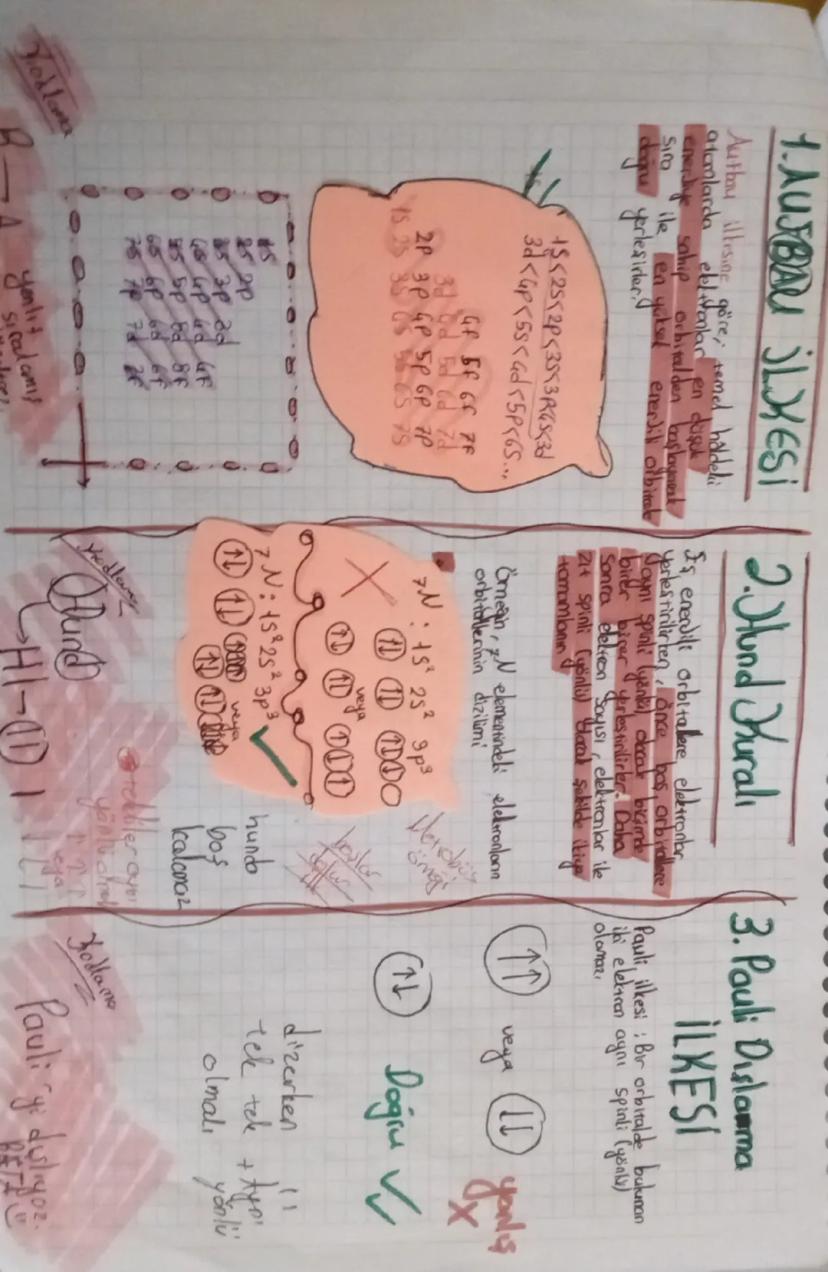 1. AUFBAU İLKESİ
Aufbau ilkesine göre; temel haldeki
atomlarda elektronlar en düşük
enerjiye sahip orbitalden başlayarak
sıra ile en yüksek enerjili orbitale
doğru yerleşirler.
1s<2s<2p<3s<3p<4s<3d
3d<4p<5s<4d<5p<6s...
4f 5f 6f 7f
3d 4d 5d 6d 7d
2p 3p 4p 5p 6p 7p
1s 2s 3s 4s 5s 6s 7s
1s
2s 2p
3s 3p 3d
4s 4p 4d 4f
5s 5p 5d 5f
6s 6p 6d 6f
7s 7p 7d 7f
Kodlama
2. Hund Kuralı
Eş enerjili orbitallere elektronlar
yerleştirilirken, önce boş orbitallere
(aynı spinli yönlü) olacak biçimde
birer birer yerleştirilirler. Daha
sonra elektron sayısı, elektronlar ile
zıt spinli (yönlü) olacak şekilde ikiye
tamamlanır.
Örneğin, 7N elementindeki elektronların
orbitallerinin dizilimi
7N: 1s² 2s² 3p³
veya
7N: 1s² 2s² 3p³
veya
hunda
boş
kalamaz
Kodlama
Hund
tekliler aynı
yönlü olmalı
veya
3. Pauli Dışlama
İLKESİ
Pauli ilkesi; Bir orbitalde bulunan
iki elektron aynı spinli (yönlü)
olamaz.
↑↑ veya ↓↓ yanlış X
↑↓ Doğru ✓
dizerken
tek tek + Aynı
olmalı yönlü
Kodlama
Pauli'yi dışlıyoz.